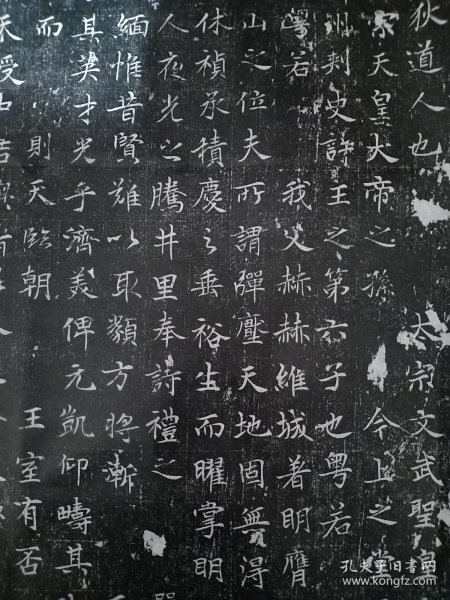 狄道人也 太宗文武聖皇
宗天皇大帝之孫 今上之堂
州刺史許王之第六子也粤若
我父赫赫維城著明膺
山之位夫所謂彈壓天地固無得
休禎承積慶之垂裕生而曜掌明
人夜光之騰井里奉詩禮之
緬惟昔賢難以取類方將漸
其英才光乎濟美俾元凱仰疇其
而 則天臨朝 王室有否
天受
孔夫子旧书网
www.kongfz.com